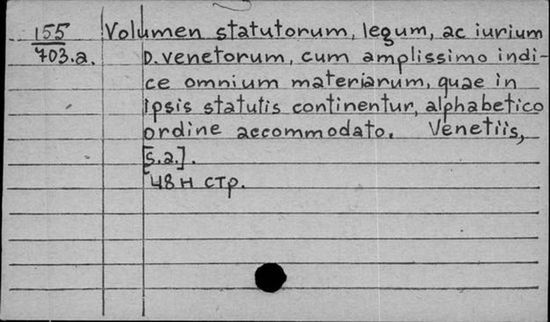 155 Volumen statutorum, legum, ac iurium
703.a. D. venetorum, cum amplissimo indi-
ce omnium materiarum, quae in
ipsis statutis continentur, alphabetico
ordine accommodato. Venetiis,
[s.a.].
48 н стр.